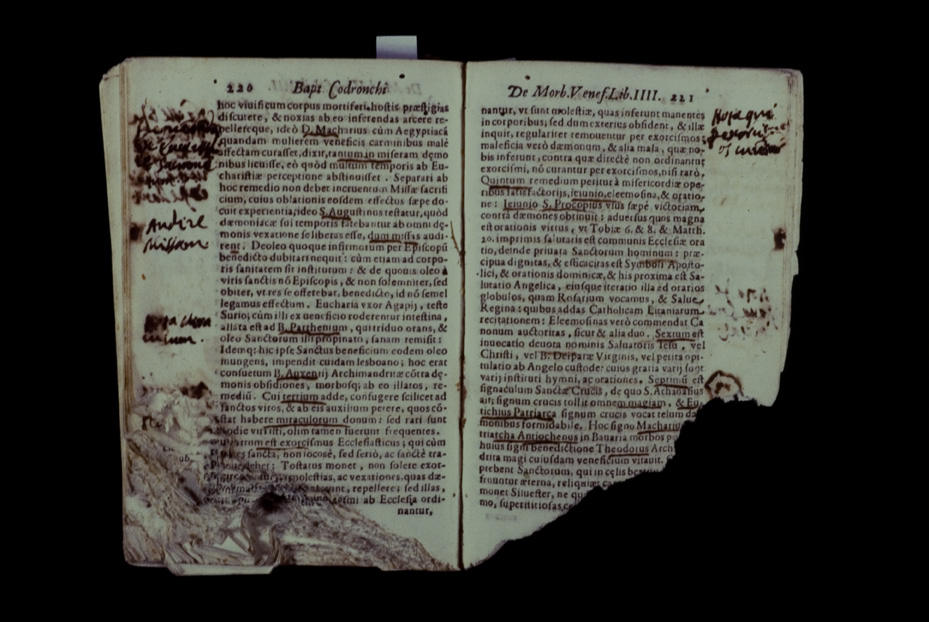 220 Bapt Codronchi
hoc viuificum corpus mortiferi hostis præstigias
discutere, & noxias ab eo inferendas arcere re-
pellereque, ideò D. Macharius cùm Aegyptiacā
quandam mulierem veneficis carminibus malè
affectam curasset, dixit, tantum in miseram dęmo
nibus licuisse, eò quòd multum temporis ab Eu-
charistiæ perceptione abstinuisset. Separati ab
hoc remedio non debet incruentum Missæ sacrifi
cium, cuius oblationis eosdem effectus sæpe do-
cuit experientia, ideo S. Augustinus testatur, quòd
dæmoniacæ sui temporis fatebantur ab omni dę-
monis vexatione se liberas esse, dum missas audi-
rent. De oleo quoque infirmorum per Episcopū
benedicto dubitari nequit: cùm etiam ad corpo-
ris sanitatem sit institutum: & de quouis oleo à
viris sanctis nō Episcopis, & non solemniter, sed
obiter, vt res se offerebat, benedicto, id nō semel
legamus effectum. Eucharia vxor Agapij, teste
Surio, cùm illi ex ueneficio roderentur intestina,
allata est ad B. Parthenium, qui triduo orans, &
oleo Sanctorum illi propinato, sanam remisit:
Idemq; hic ipse Sanctus beneficium eodem oleo
mungens, impendit cuidam lesboano; hoc erat
consuetum B. Auxentij Archimandritæ cōtra dę-
monis obsidiones, morbosq; ab eo illatos, re-
mediū. Cui tertium adde, confugere scilicet ad
sanctos viros, & ab eis auxilium petere, quos cō-
stat habere miraculorum donum: sed rari sunt
hodie viri isti, olim tamen fuerunt frequentes.
est exorcismus Ecclesiasticus; qui cùm
sancta, non iocosè, sed seriò, ac sanctè tra-
debet: Tostatus monet, non solere exor-
molestias, ac vexationes, quas dæ-
repellere; sed illas,
ab Ecclesia ordi-
nantur,
Audire
Missam
De Morb. Venef. Lib. IIII. 221
nantur, vt sunt molestiæ, quas inferunt manentes
in corporibus, sed dum exterius obsident, & illæ
inquit, regulariter remouentur per exorcismos:
maleficia verò dæmonum, & alia mala, quæ no-
bis inferunt, contra quæ directè non ordinantur
exorcismi, nō curantur per exorcismos, nisi rarò.
Quintum remedium petitur à misericordiæ ope-
ribus satisfactorijs, ieiunio, eleemosina, & oratio-
ne: Ieiunio S. Procopius vius sæpè victoriam,
contra dæmones obtinuit: aduersus quos magna
est orationis virtus, vt Tobiæ 6. & 8. & Matth.
20. imprimis salutaris est communis Ecclesiæ ora
tio, deinde priuata Sanctorum hominum: præ-
cipua dignitas, & efficacitas est Symboli Aposto-
lici, & orationis dominicæ, & his proxima est Sa-
lutatio Angelica, eiusque iteratio illa ad orarios
globulos, quam Rosarium vocamus, & Salue
Regina: quibus addas Catholicam Litaniarum
recitationem: Eleemosinas verò commendat Ca
nonum auctoritas, sicut & alia duo. Sextum est
inuocatio deuota nominis Saluatoris Iesu, vel
Christi, vel B. Deiparæ Virginis, vel petita opi-
tulatio ab Angelo custode: cuius gratia varij sunt
varij instituti hymni, ac orationes. Septimū est
signaculum Sanctæ Crucis, de quo S. Athanasius
ait; signum crucis tollit omnem magiam. & Eu-
tichius Patriarca signum crucis vocat telum dæ
monibus formidabile. Hoc signo Macharius
triarcha Antiochenus in Bauaria morbos
huius signi benedictione Theodorus Arch
drita magi cuiusdam veneficium vitauit.
prebent Sanctorum, qui in cęlis
fruuntur æterna, reliquiæ
monet Siluester, ne qu
mo, superstitiosa,